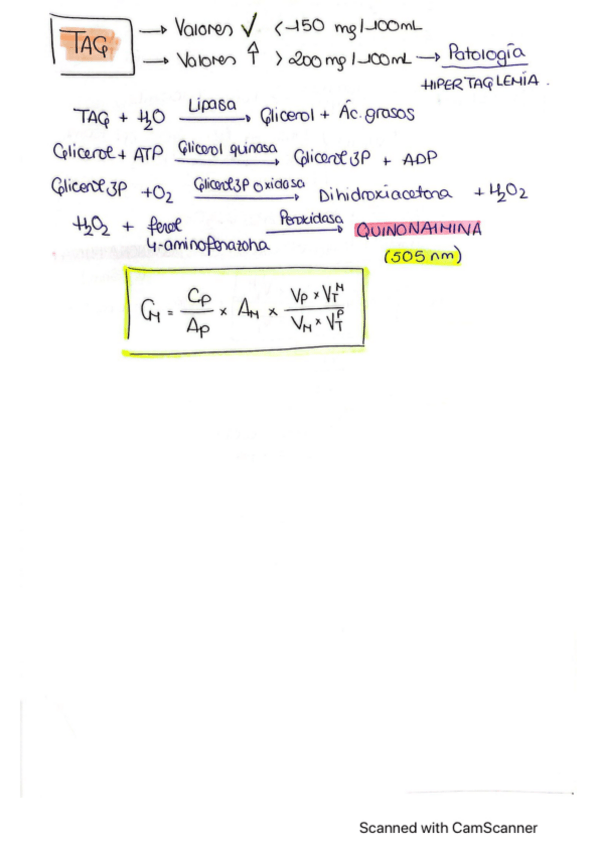 TAG → Valores ✓ < 150 mg / 100mL
→ Valores ↑ > 200 mg / 100mL → Patología
HIPERTAGLEMÍA.
TAG + H₂O Lipasa → Glicerol + Ác. grasos
Glicerol + ATP Glicerol quinasa → Glicerol 3P + ADP
Glicerol 3P + O₂ Glicerol 3P oxidasa → Dihidroxiacetona + H₂O₂
H₂O₂ + fenol Peroxidasa → QUINONAIMINA
4-aminofenazona (505 nm)
C_M = C_P / A_P × A_M × V_P × V_T^M / V_M × V_T^P
Scanned with CamScanner